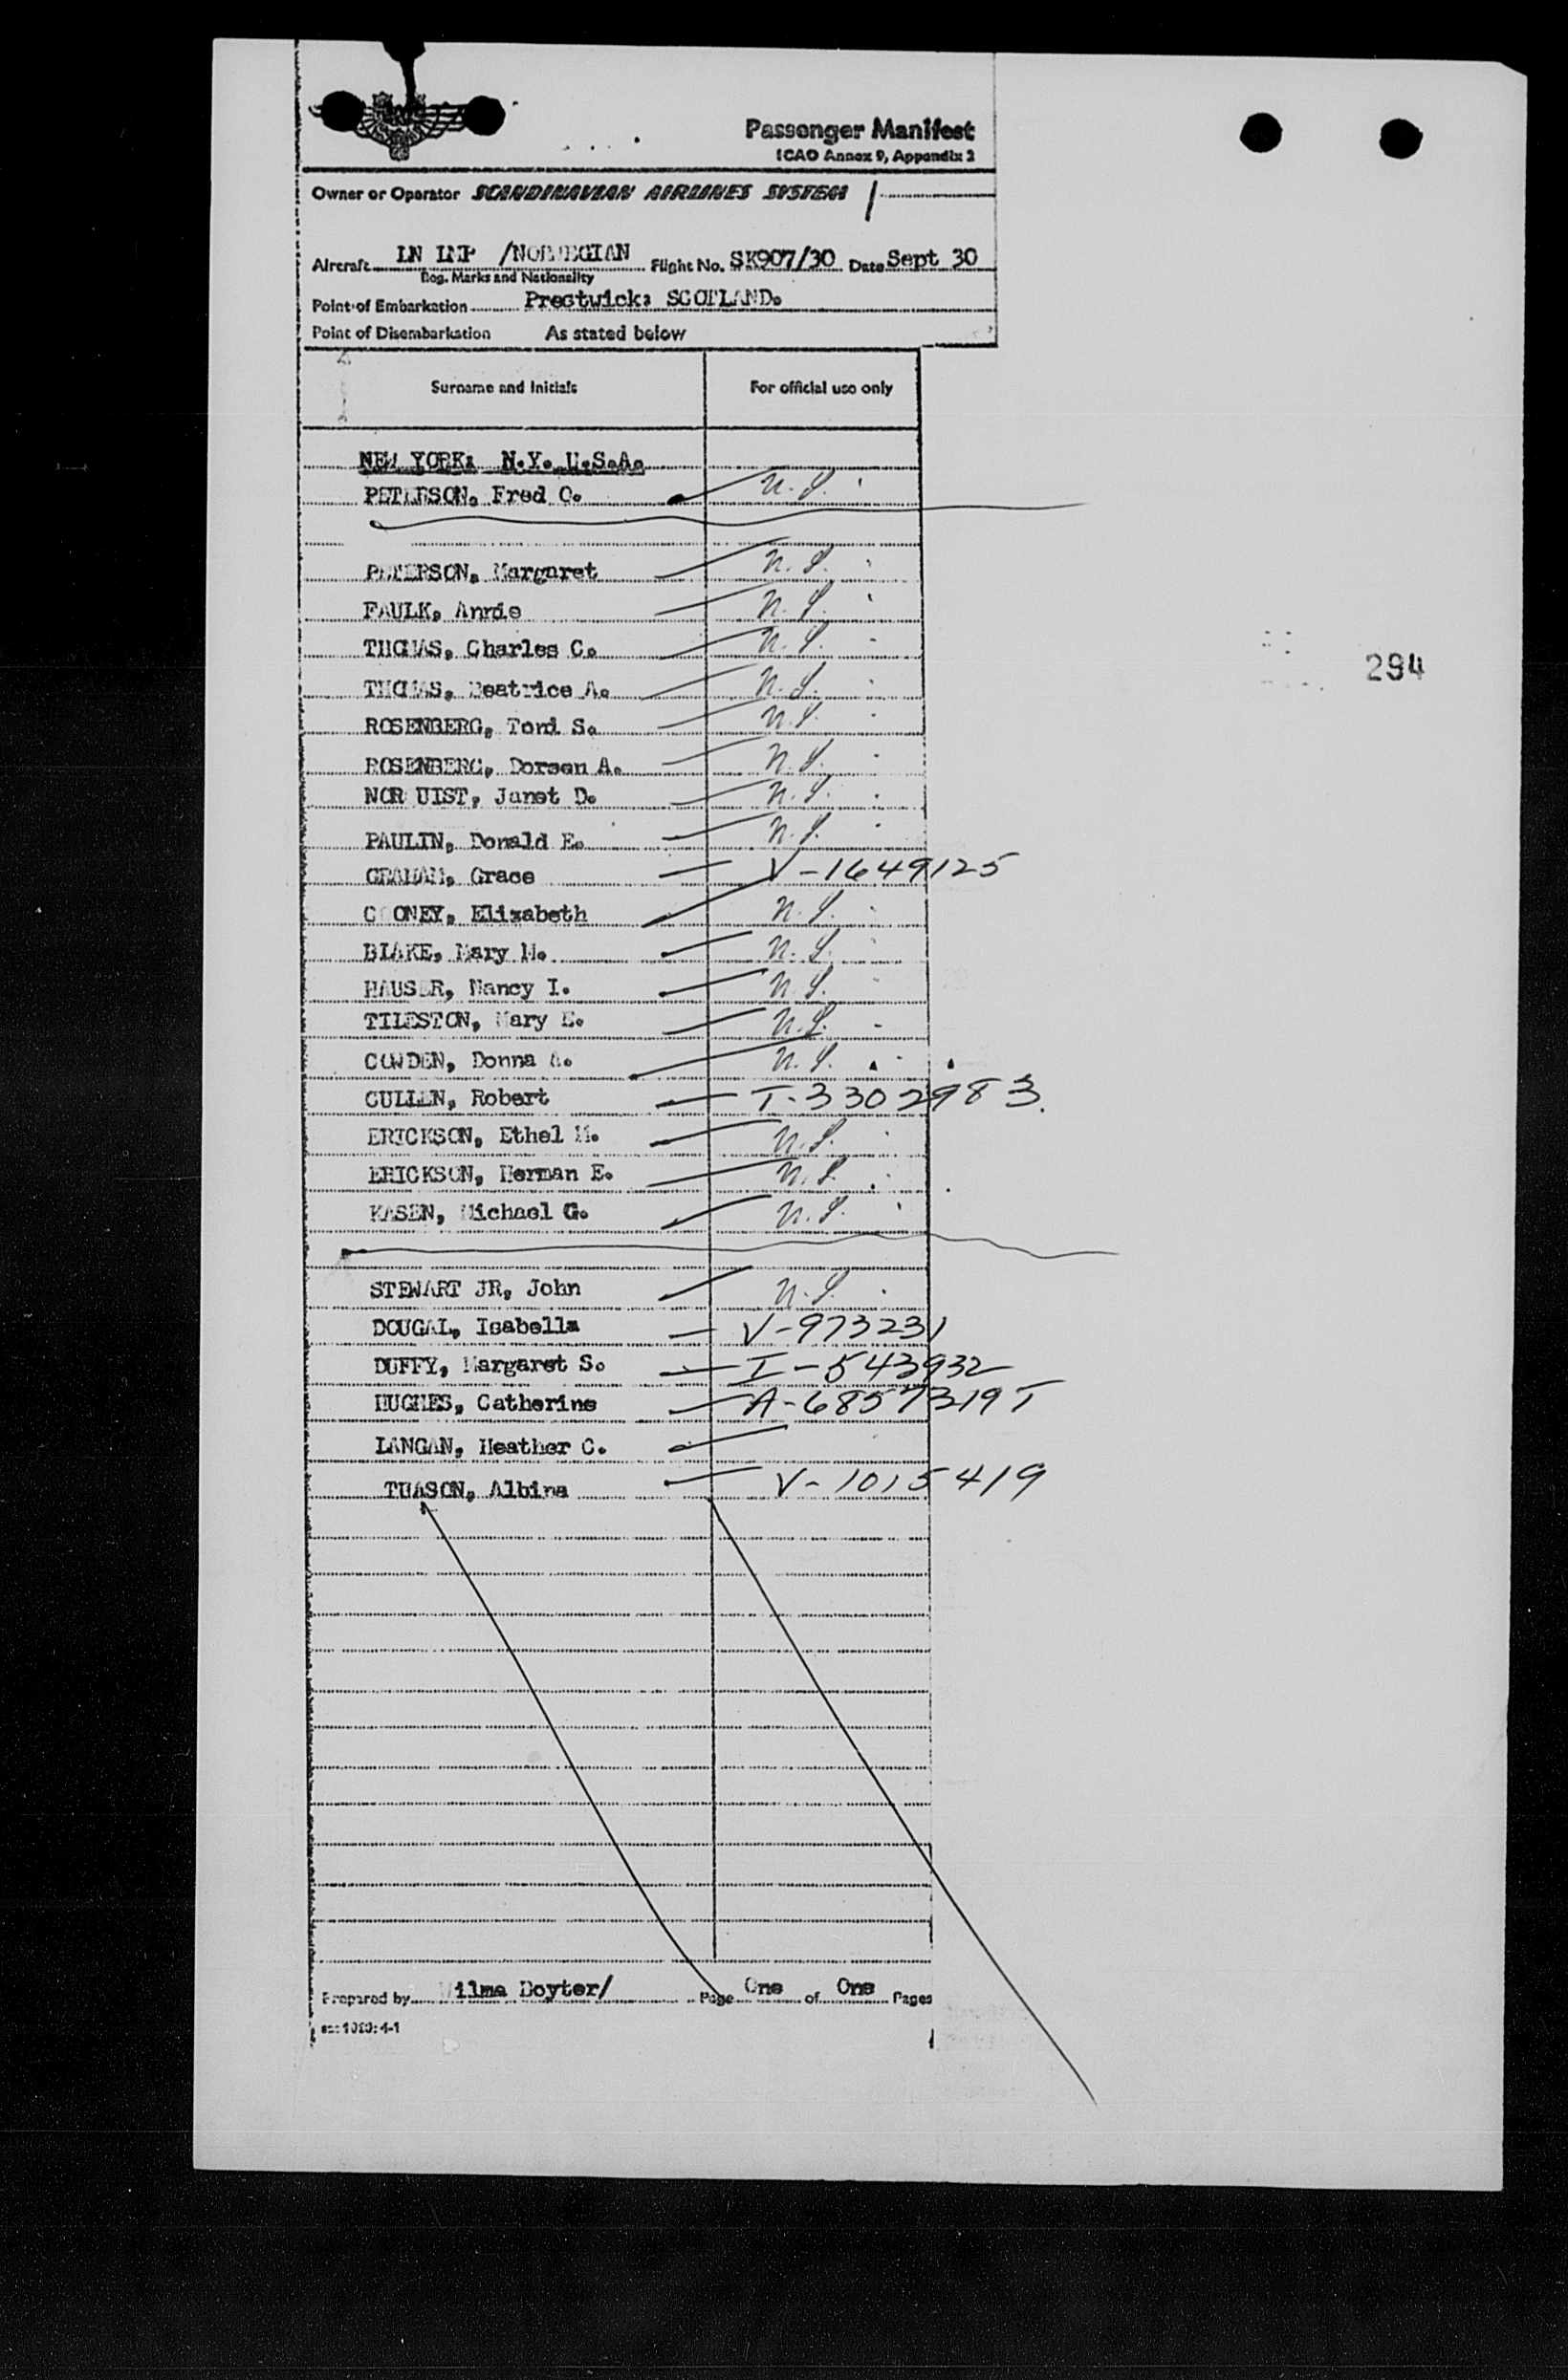 Passenger Manifest
ICAO Annex 9, Appendix 2
Owner or Operator SCANDINAVIAN AIRLINES SYSTEM
Aircraft LN LMP /NORWEGIAN Flight No. SK907/30 Date Sept 30
Reg. Marks and Nationality
Point of Embarkation Prestwick: SCOTLAND.
Point of Disembarkation As stated below
Surname and Initials For official use only
NEW YORK: N.Y. U.S.A.
PETERSON, Fred C. N.S.
294
PETERSON, Margaret N.S.
FAULK, Annie N.S.
THOMAS, Charles C. N.S.
THOMAS, Beatrice A. N.S.
ROSENBERG, Toni S. N.S.
ROSENBERG, Doreen A. N.S.
NOR UIST, Janet D. N.S.
PAULIN, Donald E. N.S.
GRAHAM, Grace V-1649125
COONEY, Elizabeth N.S.
BLAKE, Mary M. N.S.
HAUSER, Nancy I. N.S.
TILESTON, Mary E. N.S.
COWDEN, Donna A. N.S.
CULLEN, Robert T-3302983.
ERICKSON, Ethel M. N.S.
ERICKSON, Herman E. N.S.
KASEN, Michael G. N.S.
STEWART JR, John N.S.
DOUGAL, Isabella V-973231
DUFFY, Margaret S. I-543932
HUGHES, Catherine A-6857319 T
LANGAN, Heather C.
TUASON, Albina V-1015419
Prepared by Wilma Doyter/ Page One of One Pages